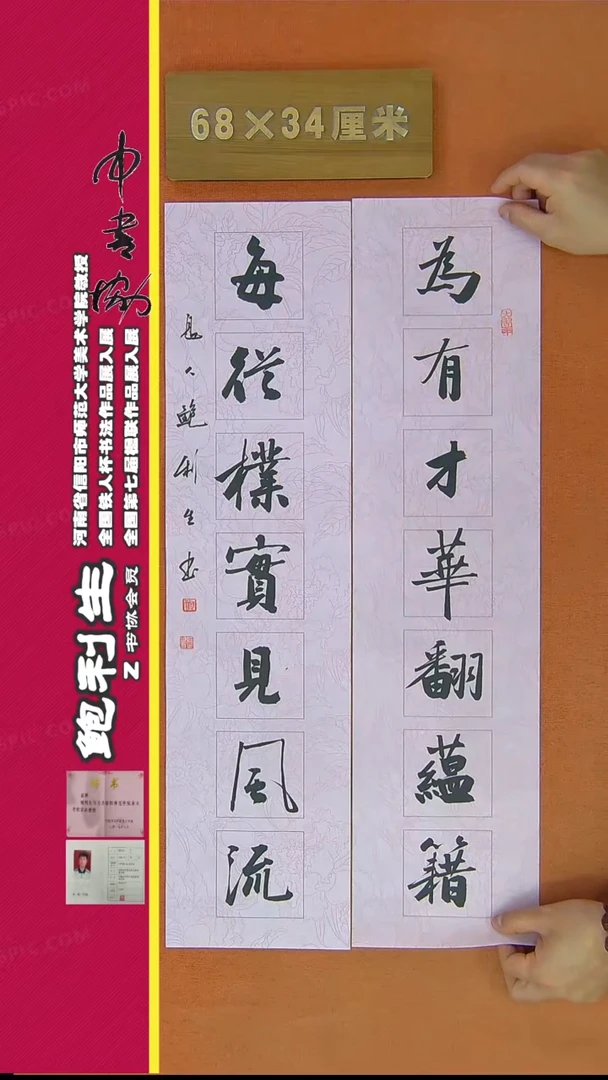 68×34厘米
為有才華翻蘊籍
每從樸實見風流
鮑利生书
中书协
河南省信阳市师范大学美术学院教授
全国铁人杯书法作品展入展
全国第七届楹联作品展入展
鲍利生
Z 书协会员